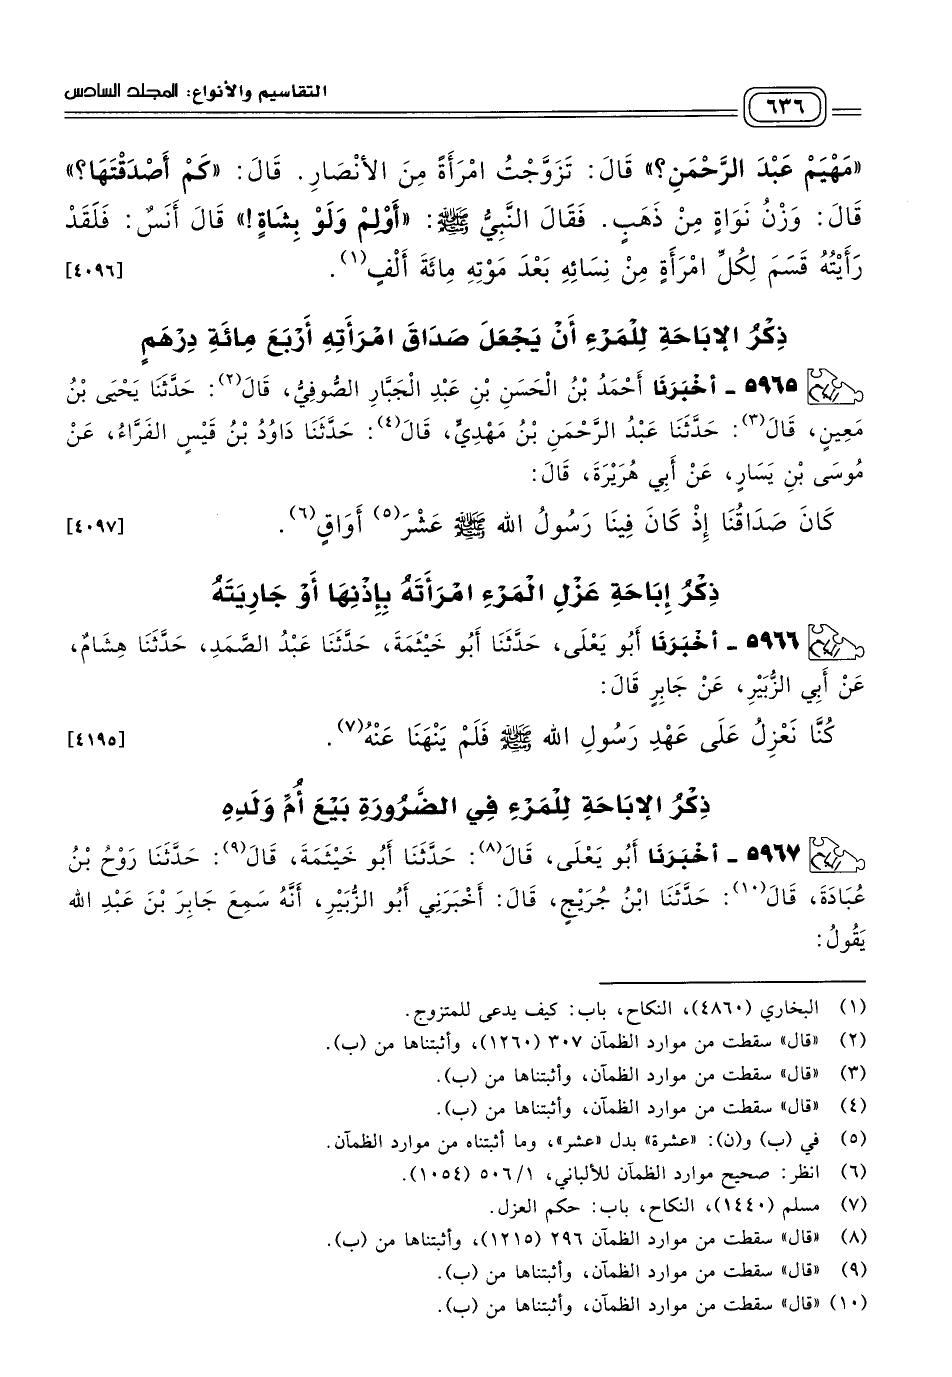 التقاسيم والأنواع: المجلد السادس
٦٣٦
«مَهْيَمْ عَبْدَ الرَّحْمَنِ؟» قَالَ: تَزَوَّجْتُ امْرَأَةً مِنَ الأَنْصَارِ. قَالَ: «كَمْ أَصْدَقْتَهَا؟»
قَالَ: وَزْنُ نَوَاةٍ مِنْ ذَهَبٍ. فَقَالَ النَّبِيُّ ﷺ: «أَوْلِمْ وَلَوْ بِشَاةٍ!» قَالَ أَنَسٌ: فَلَقَدْ
رَأَيْتُهُ قَسَمَ لِكُلِّ امْرَأَةٍ مِنْ نِسَائِهِ بَعْدَ مَوْتِهِ مِائَةَ أَلْفٍ(١). [٤٠٩٦]
ذِكْرُ الإِبَاحَةِ لِلْمَرْءِ أَنْ يَجْعَلَ صَدَاقَ امْرَأَتِهِ أَرْبَعَ مِائَةِ دِرْهَمٍ
٥٩٦٥ - أَخْبَرَنَا أَحْمَدُ بْنُ الْحَسَنِ بْنِ عَبْدِ الْجَبَّارِ الصُّوفِيُّ، قَالَ(٢): حَدَّثَنَا يَحْيَى بْنُ
مَعِينٍ، قَالَ(٣): حَدَّثَنَا عَبْدُ الرَّحْمَنِ بْنُ مَهْدِيٍّ، قَالَ(٤): حَدَّثَنَا دَاوُدُ بْنُ قَيْسٍ الفَرَّاءُ، عَنْ
مُوسَى بْنِ يَسَارٍ، عَنْ أَبِي هُرَيْرَةَ، قَالَ:
كَانَ صَدَاقُنَا إِذْ كَانَ فِينَا رَسُولُ الله ﷺ عَشْرَ(٥) أَوَاقٍ(٦). [٤٠٩٧]
ذِكْرُ إِبَاحَةِ عَزْلِ الْمَرْءِ امْرَأَتَهُ بِإِذْنِهَا أَوْ جَارِيَتَهُ
٥٩٦٦ - أَخْبَرَنَا أَبُو يَعْلَى، حَدَّثَنَا أَبُو خَيْثَمَةَ، حَدَّثَنَا عَبْدُ الصَّمَدِ، حَدَّثَنَا هِشَامٌ،
عَنْ أَبِي الزُّبَيْرِ، عَنْ جَابِرٍ قَالَ:
كُنَّا نَعْزِلُ عَلَى عَهْدِ رَسُولِ الله ﷺ فَلَمْ يَنْهَنَا عَنْهُ(٧). [٤١٩٥]
ذِكْرُ الإِبَاحَةِ لِلْمَرْءِ فِي الضَّرُورَةِ بَيْعَ أُمِّ وَلَدِهِ
٥٩٦٧ - أَخْبَرَنَا أَبُو يَعْلَى، قَالَ(٨): حَدَّثَنَا أَبُو خَيْثَمَةَ، قَالَ(٩): حَدَّثَنَا رَوْحُ بْنُ
عُبَادَةَ، قَالَ(١٠): حَدَّثَنَا ابْنُ جُرَيْجٍ، قَالَ: أَخْبَرَنِي أَبُو الزُّبَيْرِ، أَنَّهُ سَمِعَ جَابِرَ بْنَ عَبْدِ الله
يَقُولُ:
(١) البخاري (٤٨٦٠)، النكاح، باب: كيف يدعى للمتزوج.
(٢) «قال» سقطت من موارد الظمآن ٣٠٧ (١٢٦٠)، وأثبتناها من (ب).
(٣) «قال» سقطت من موارد الظمآن، وأثبتناها من (ب).
(٤) «قال» سقطت من موارد الظمآن، وأثبتناها من (ب).
(٥) في (ب) و(ن): «عشرة» بدل «عشر»، وما أثبتناه من موارد الظمآن.
(٦) انظر: صحيح موارد الظمآن للألباني، ٥٠٦/١ (١٠٥٤).
(٧) مسلم (١٤٤٠)، النكاح، باب: حكم العزل.
(٨) «قال» سقطت من موارد الظمآن ٢٩٦ (١٢١٥)، وأثبتناها من (ب).
(٩) «قال» سقطت من موارد الظمآن، وأثبتناها من (ب).
(١٠) «قال» سقطت من موارد الظمآن، وأثبتناها من (ب).